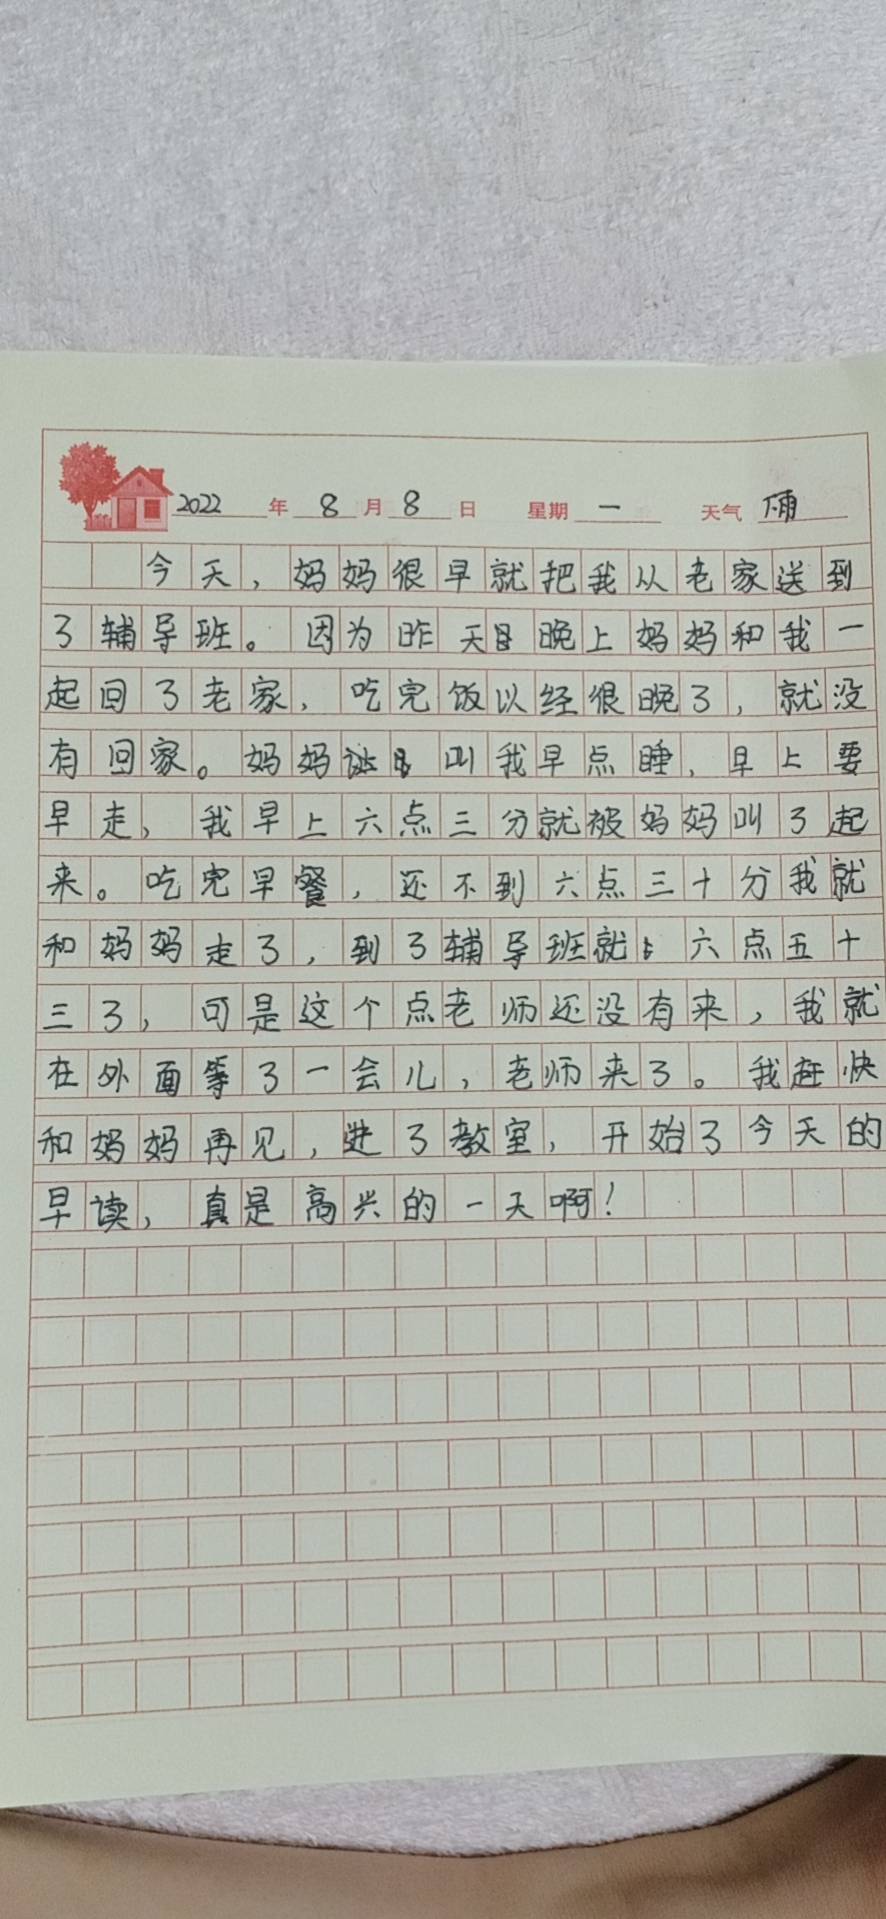 2022年 8月8日 星期一 天气 下雨
今天,妈妈很早就把我从老家送到
了辅导班。因为昨天晚上妈妈和我一
起回了老家,吃完饭以经很晚了,就没
有回家。妈妈让 叫我早点睡,早上要
早走,我早上六点三分就被妈妈叫了起
来。吃完早餐,还不到六点三十分我就
和妈妈走了,到了辅导班就 六点五十
三了,可是这个点老师还没有来,我就
在外面等了一会儿,老师来了。我赶快
和妈妈再见,进了教室,开始了今天的
早读,真是高兴的一天啊!